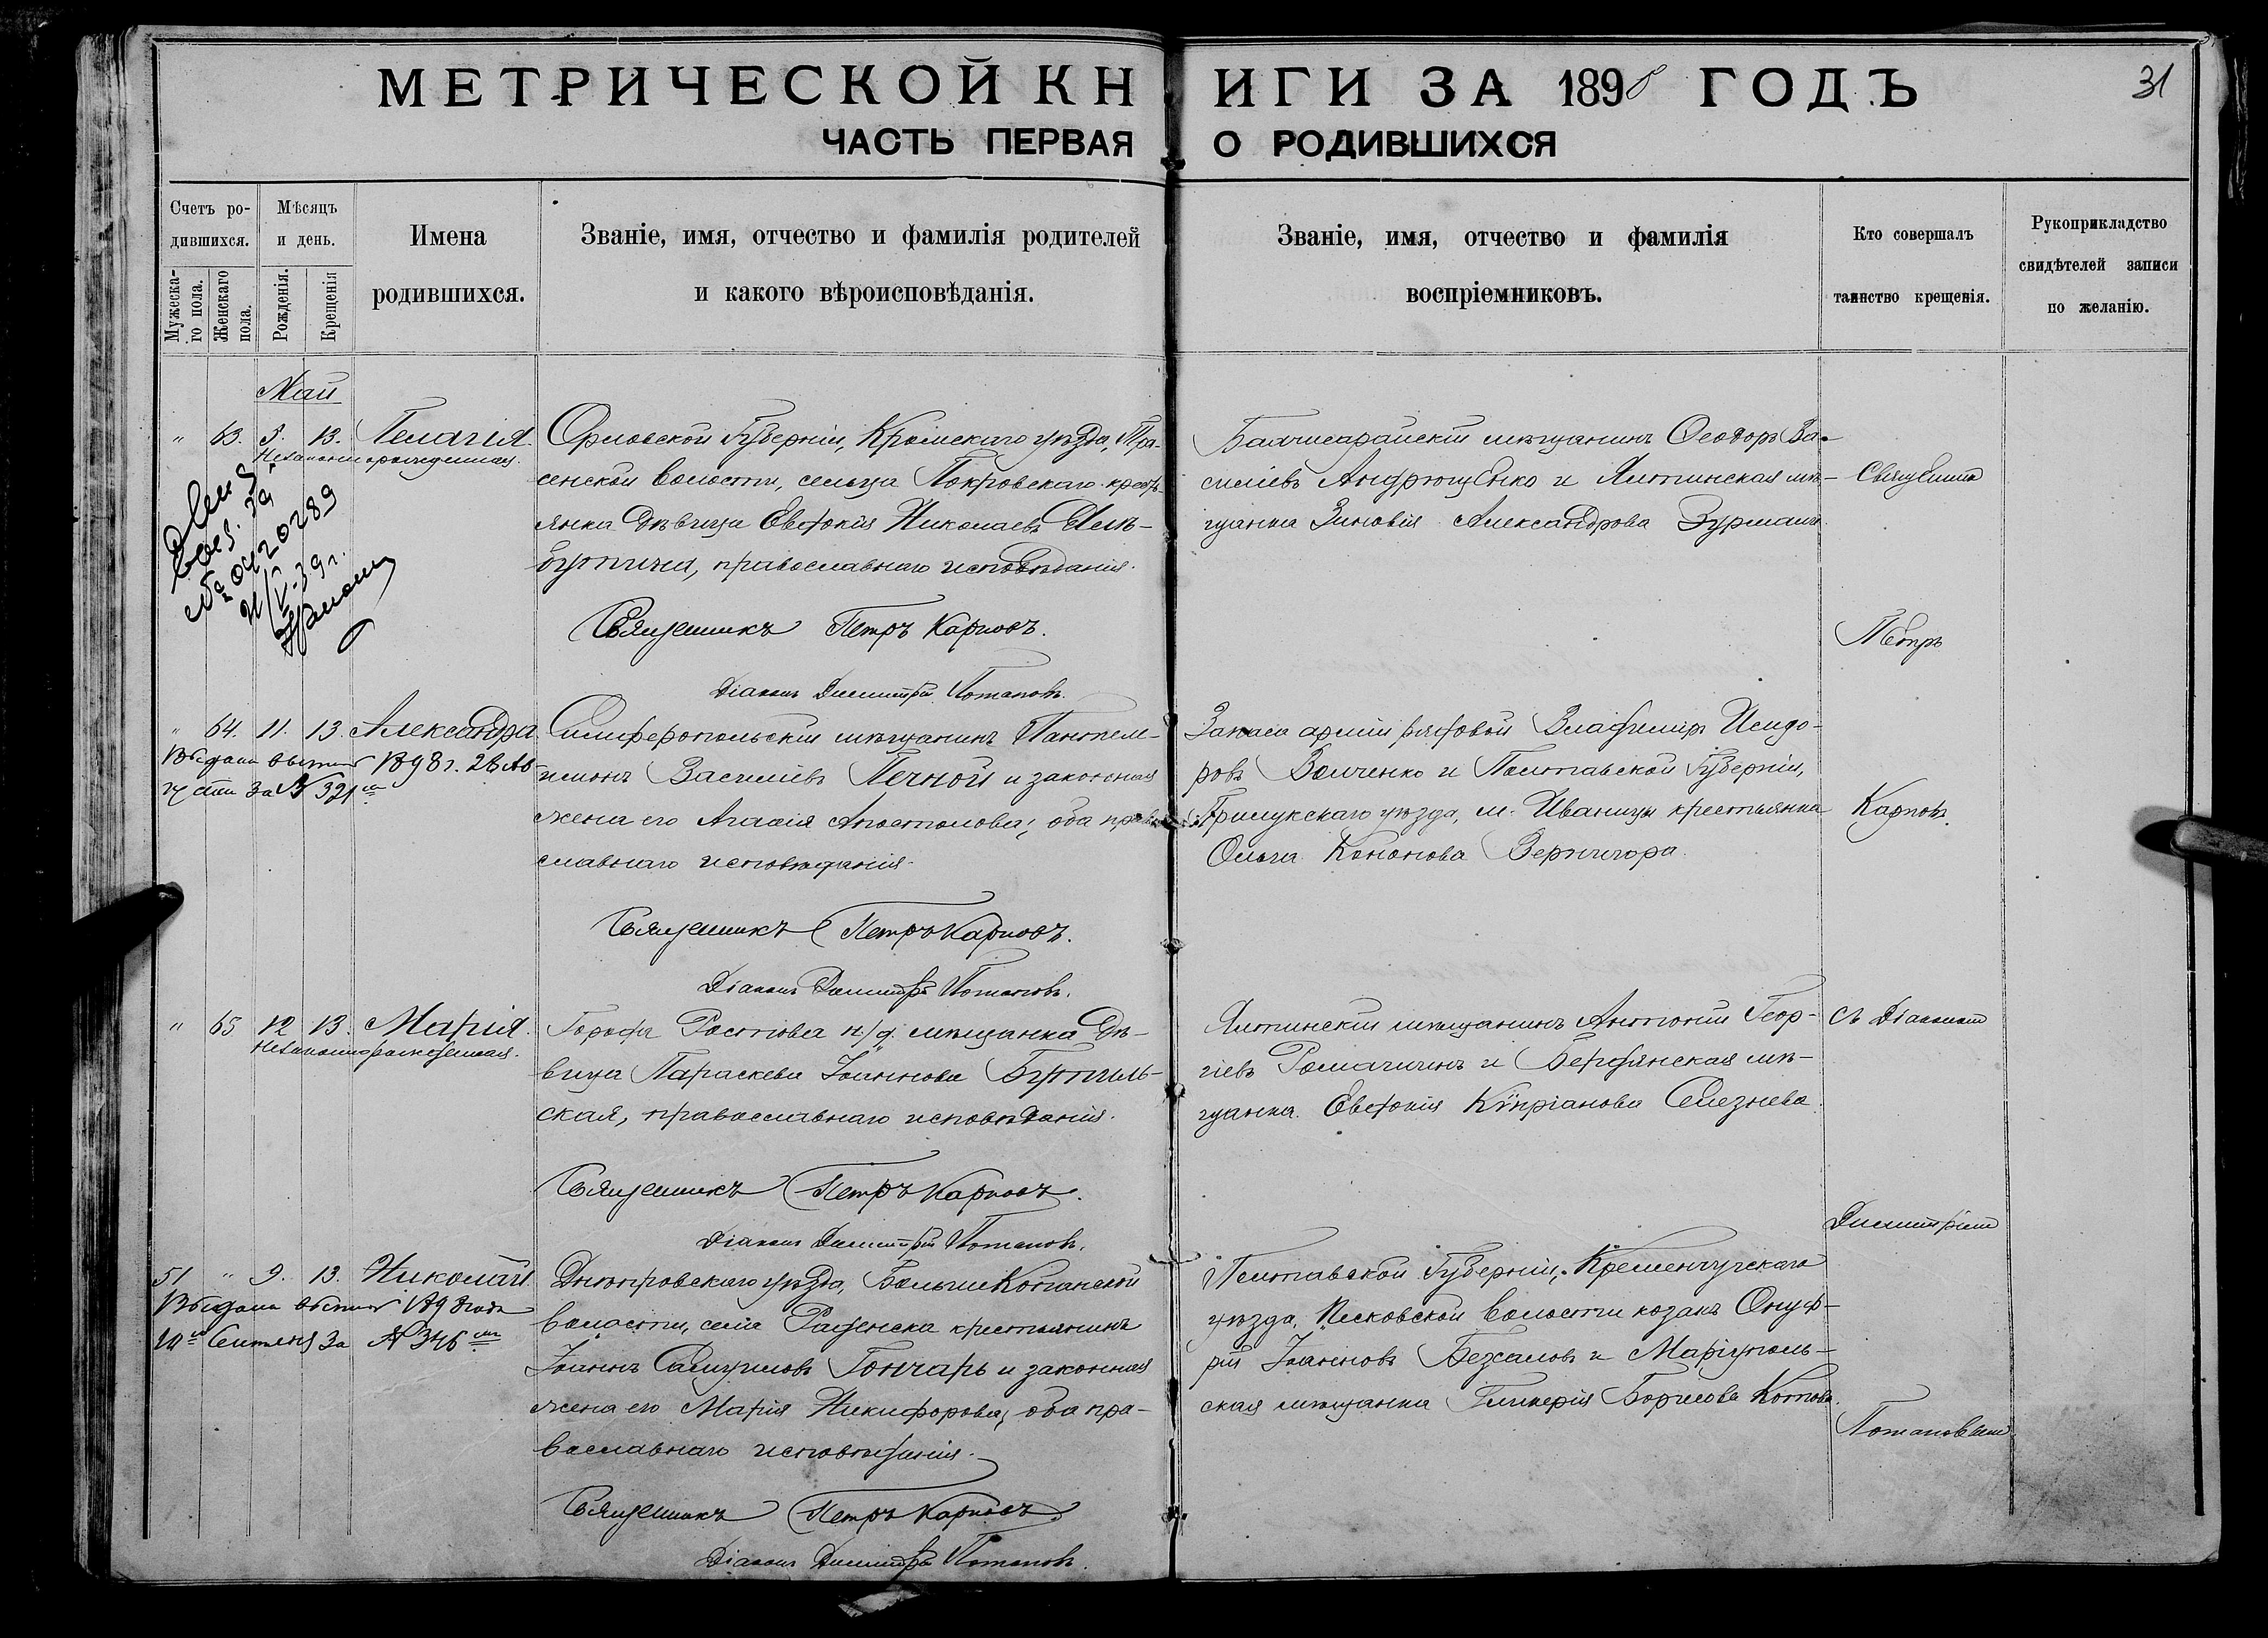 МЕТРИЧЕСКОЙ КНИГИ ЗА 1898 ГОДЪ
31
ЧАСТЬ ПЕРВАЯ О РОДИВШИХСЯ
Счетъ родившихся.
Мужескаго пола.
Женскаго пола.
Мѣсяцъ и день.
Рожденія.
Крещенія
Имена
родившихся.
Званіе, имя, отчество и фамилія родителей
и какого вѣроисповѣданія.
Званіе, имя, отчество и фамилія
воспріемниковъ.
Кто совершалъ
таинство крещенія.
Рукоприкладство
свидѣтелей записи
по желанію.
Май
" 63. 5. 13. Пелагія
Незаконнорожденная.
Орловской Губерніи, Кромскаго уѣзда,
сенской волости, сельца Покровскаго кресть-
янка дѣвица Евдокія Николаева
православнаго исповѣданія.
Священникъ Петръ Карповъ.
Діаконъ Димитрій Потаповъ.
Бахчисарайскій мѣщанинъ Ѳеодоръ Ва-
силіевъ Андрющенко и Ялтинская мѣ-
щанка Зиновія Александрова
Священникъ
Петръ
№ 0420289
" 64. 11. 13. Александра
Выдана выпись 1898 г. 28 Ав-
густа за № 321
Симферопольскій мѣщанинъ Пантеле-
имонъ Василіевъ Печной и законная
жена его Агафія Апостолова; оба право-
славнаго исповѣданія.
Священникъ Петръ Карповъ.
Діаконъ Димитрій Потаповъ.
Запаса арміи рядовой Владимиръ Исидо-
ровъ Волченко и Полтавской Губерніи,
Прилукскаго уѣзда, м. Иваницы крестьянка
Ольга Кононова Вернигора.
Карповъ
" 65 12 13. Марія.
Незаконнорожденная.
Города Ростова н/д. мѣщанка дѣ-
вица Параскева Іоаннова
ская, православнаго исповѣданія.
Священникъ Петръ Карповъ.
Діаконъ Димитрій Потаповъ.
Ялтинскій мѣщанинъ Антоній Геор-
гіевъ Ромачинъ и Бердянская мѣ-
щанка Евдокія Кипріанова Селезнева
съ Діакономъ
Димитріемъ
51 " 9. 13. Николай
Выдана выпись 1898 года
10 Сентяб за № 346
Днѣпровскаго уѣзда, Больше Копанской
волости, села Раденска крестьянинъ
Іоаннъ Самуиловъ Гончаръ и законная
жена его Марія Никифорова; оба пра-
вославнаго исповѣданія.
Священникъ Петръ Карповъ
Діаконъ Димитрій Потаповъ.
Полтавской Губерніи, Кременчугскаго
уѣзда, Песковской волости козакъ Онуф-
рій Іоанновъ Безсаловъ и Маріуполь-
ская мѣщанка Гликерія Борисова Котова.
Потаповымъ